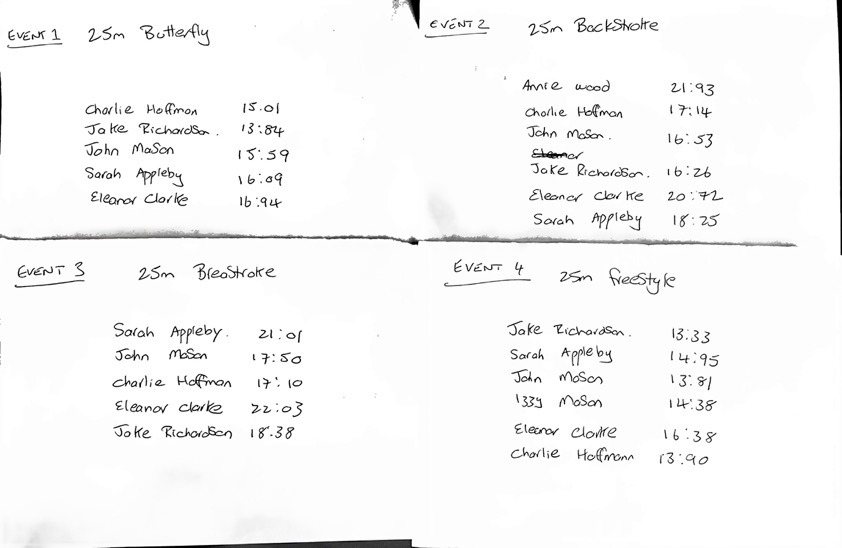 EVENT 1 25m Butterfly
Charlie Hoffman 15.01
Jake Richardson. 13:84
John Mason 15:59
Sarah Appleby 16:09
Eleanor Clarke 16:94
EVENT 2 25m Backstroke
Annie wood 21:93
Charlie Hoffman 17:14
John Mason. 16:53
Eleanor
Jake Richardson. 16:26
Eleanor Clarke 20:72
Sarah Appleby 18:25
EVENT 3 25m Breastroke
Sarah Appleby. 21:01
John Mason 17:50
Charlie Hoffman 17:10
Eleanor Clarke 22:03
Jake Richardson 18.38
EVENT 4 25m freestyle
Jake Richardson. 13:33
Sarah Appleby 14:95
John Mason 13:81
Izzy Mason 14:38
Eleanor Clarke 16:38
Charlie Hoffmann 13:90